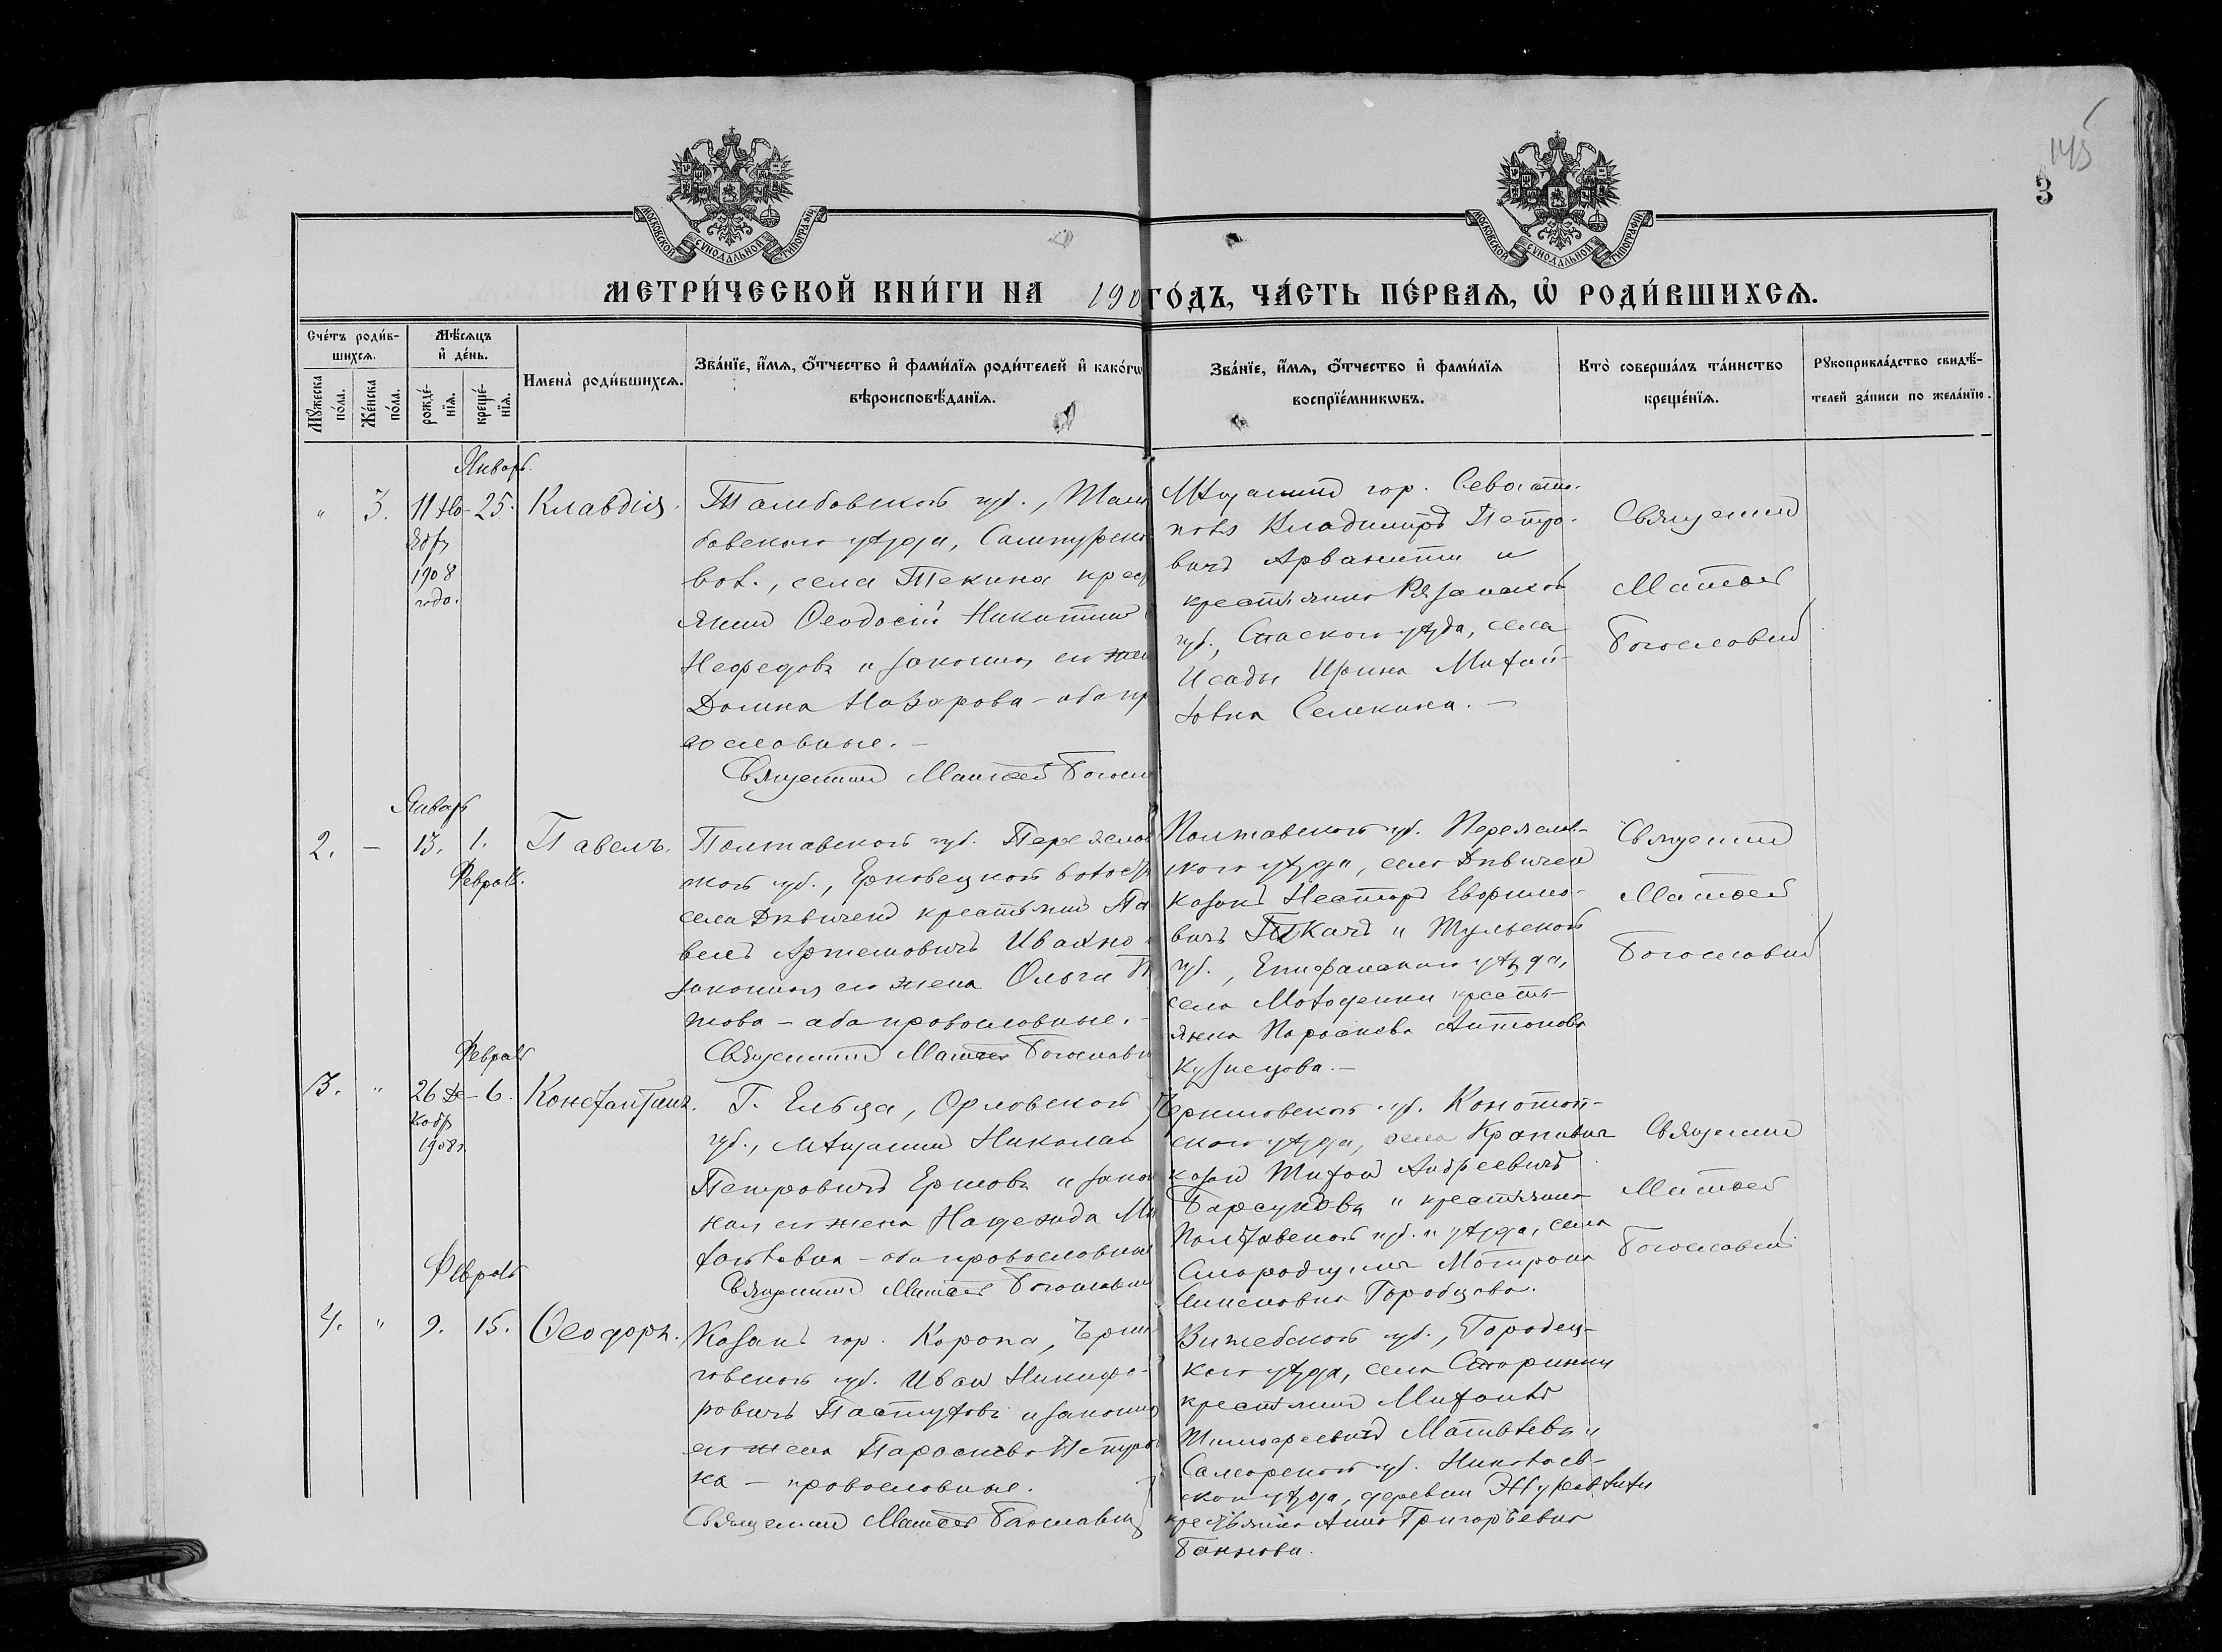 145
3
МОСКОВСКОЙ СѴНОДАЛЬНОЙ ТИПОГРАФІИ
МОСКОВСКОЙ СѴНОДАЛЬНОЙ ТИПОГРАФІИ
МЕТРИ́ЧЕСКОЙ КНИ́ГИ НА 190 ГО́ДЪ, ЧА́СТЬ ПЕ́РВАѦ, Ѡ҆ РОДИ́ВШИХСѦ.
Сче́тъ роди́в-
шихсѧ.
Мꙋ́жеска по́ла.
Же́нска по́ла.
Мѣ́сѧцъ
и҆ де́нь.
рожде́-нїѧ.
креще́-нїѧ.
Имена̀ роди́вшихсѧ.
Зва́нїе, и҆́мѧ, ѻ҆́тчество и҆ фами́лїѧ роди́телей и҆ како́гѡ
вѣроисповѣ́данїѧ.
Зва́нїе, и҆́мѧ, ѻ҆́тчество и҆ фами́лїѧ
воспрїе́мникѡвъ.
Кто̀ соверша́лъ та́инство
креще́нїѧ.
Рꙋкоприкла́дство свидѣ́-
телей за́писи по жела́нїю.
Январь.
" 3. 11 Но- 25. Клавдія.
ября
1908
года.
Тамбовской губ., Там
бовскаго уѣзда, Сампурско
вол., села Текина крес
янинъ Ѳеодосій Никитинъ
Нефедовъ и законная его жен
Домна Назарова – оба пр
вославные. –
Священникъ Матѳей Богосл
Мѣщанинъ гор. Севасто-
поля Владимиръ Петро-
вичъ Арванити и
крестьянка Рязанской
губ., Спаскаго уѣзда, села
Исады Ирина Михай-
ловна Селикина. –
Священникъ
Матѳей
Богословскій
Январь
2. – 13. 1. Павелъ.
Февраль.
Полтавской губ. Переяслав
ской губ., Ерковецкой волост
села Дѣвичекъ крестьянинъ Па
велъ Артемовичъ Ивахно
законная его жена Ольга
това – оба православные. –
Священникъ Матѳей Богословск
Полтавской губ. Переяслав-
скаго уѣзда, села Дѣвичекъ
козакъ Несторъ Евфимо-
вичъ Ткачъ и Тульской
губ., Епифанскаго уѣзда,
села Молоденки кресть-
янка Параскева Антонова
Кузнецова. –
Священникъ
Матѳей
Богословскій
Февраль
3. " 26 Де- 6. Константинъ.
кабр
1908г.
Г. Ельца, Орловской
губ., мѣщанинъ Николай
Петровичъ Ермовъ и закон
ная его жена Надежда Ми
хайловна – оба православные
Священникъ Матѳей Богословскій
Черниговской губ. Конотоп-
скаго уѣзда, села
козакъ Андреевичъ
Барсуковъ и крестьянка
Полтавской губ. и уѣзда, села
Матрона
Горобцова.
Священникъ
Матѳей
Богословскій
Февраль
4. " 9. 15. Ѳеодоръ.
Козакъ гор. Коропа, Черни
говской губ. Иванъ Никифо-
ровичъ Пастуховъ и законная
его жена Параскева Петров
на – православные.
Священникъ Матѳей Богословскій
Витебской губ., Городец-
каго уѣзда, села
крестьянинъ Михаилъ
Тимофеевичъ Матвѣевъ и
Самарской губ. Николаев-
скаго уѣзда, деревни
крестьянка Анна Григорьевна